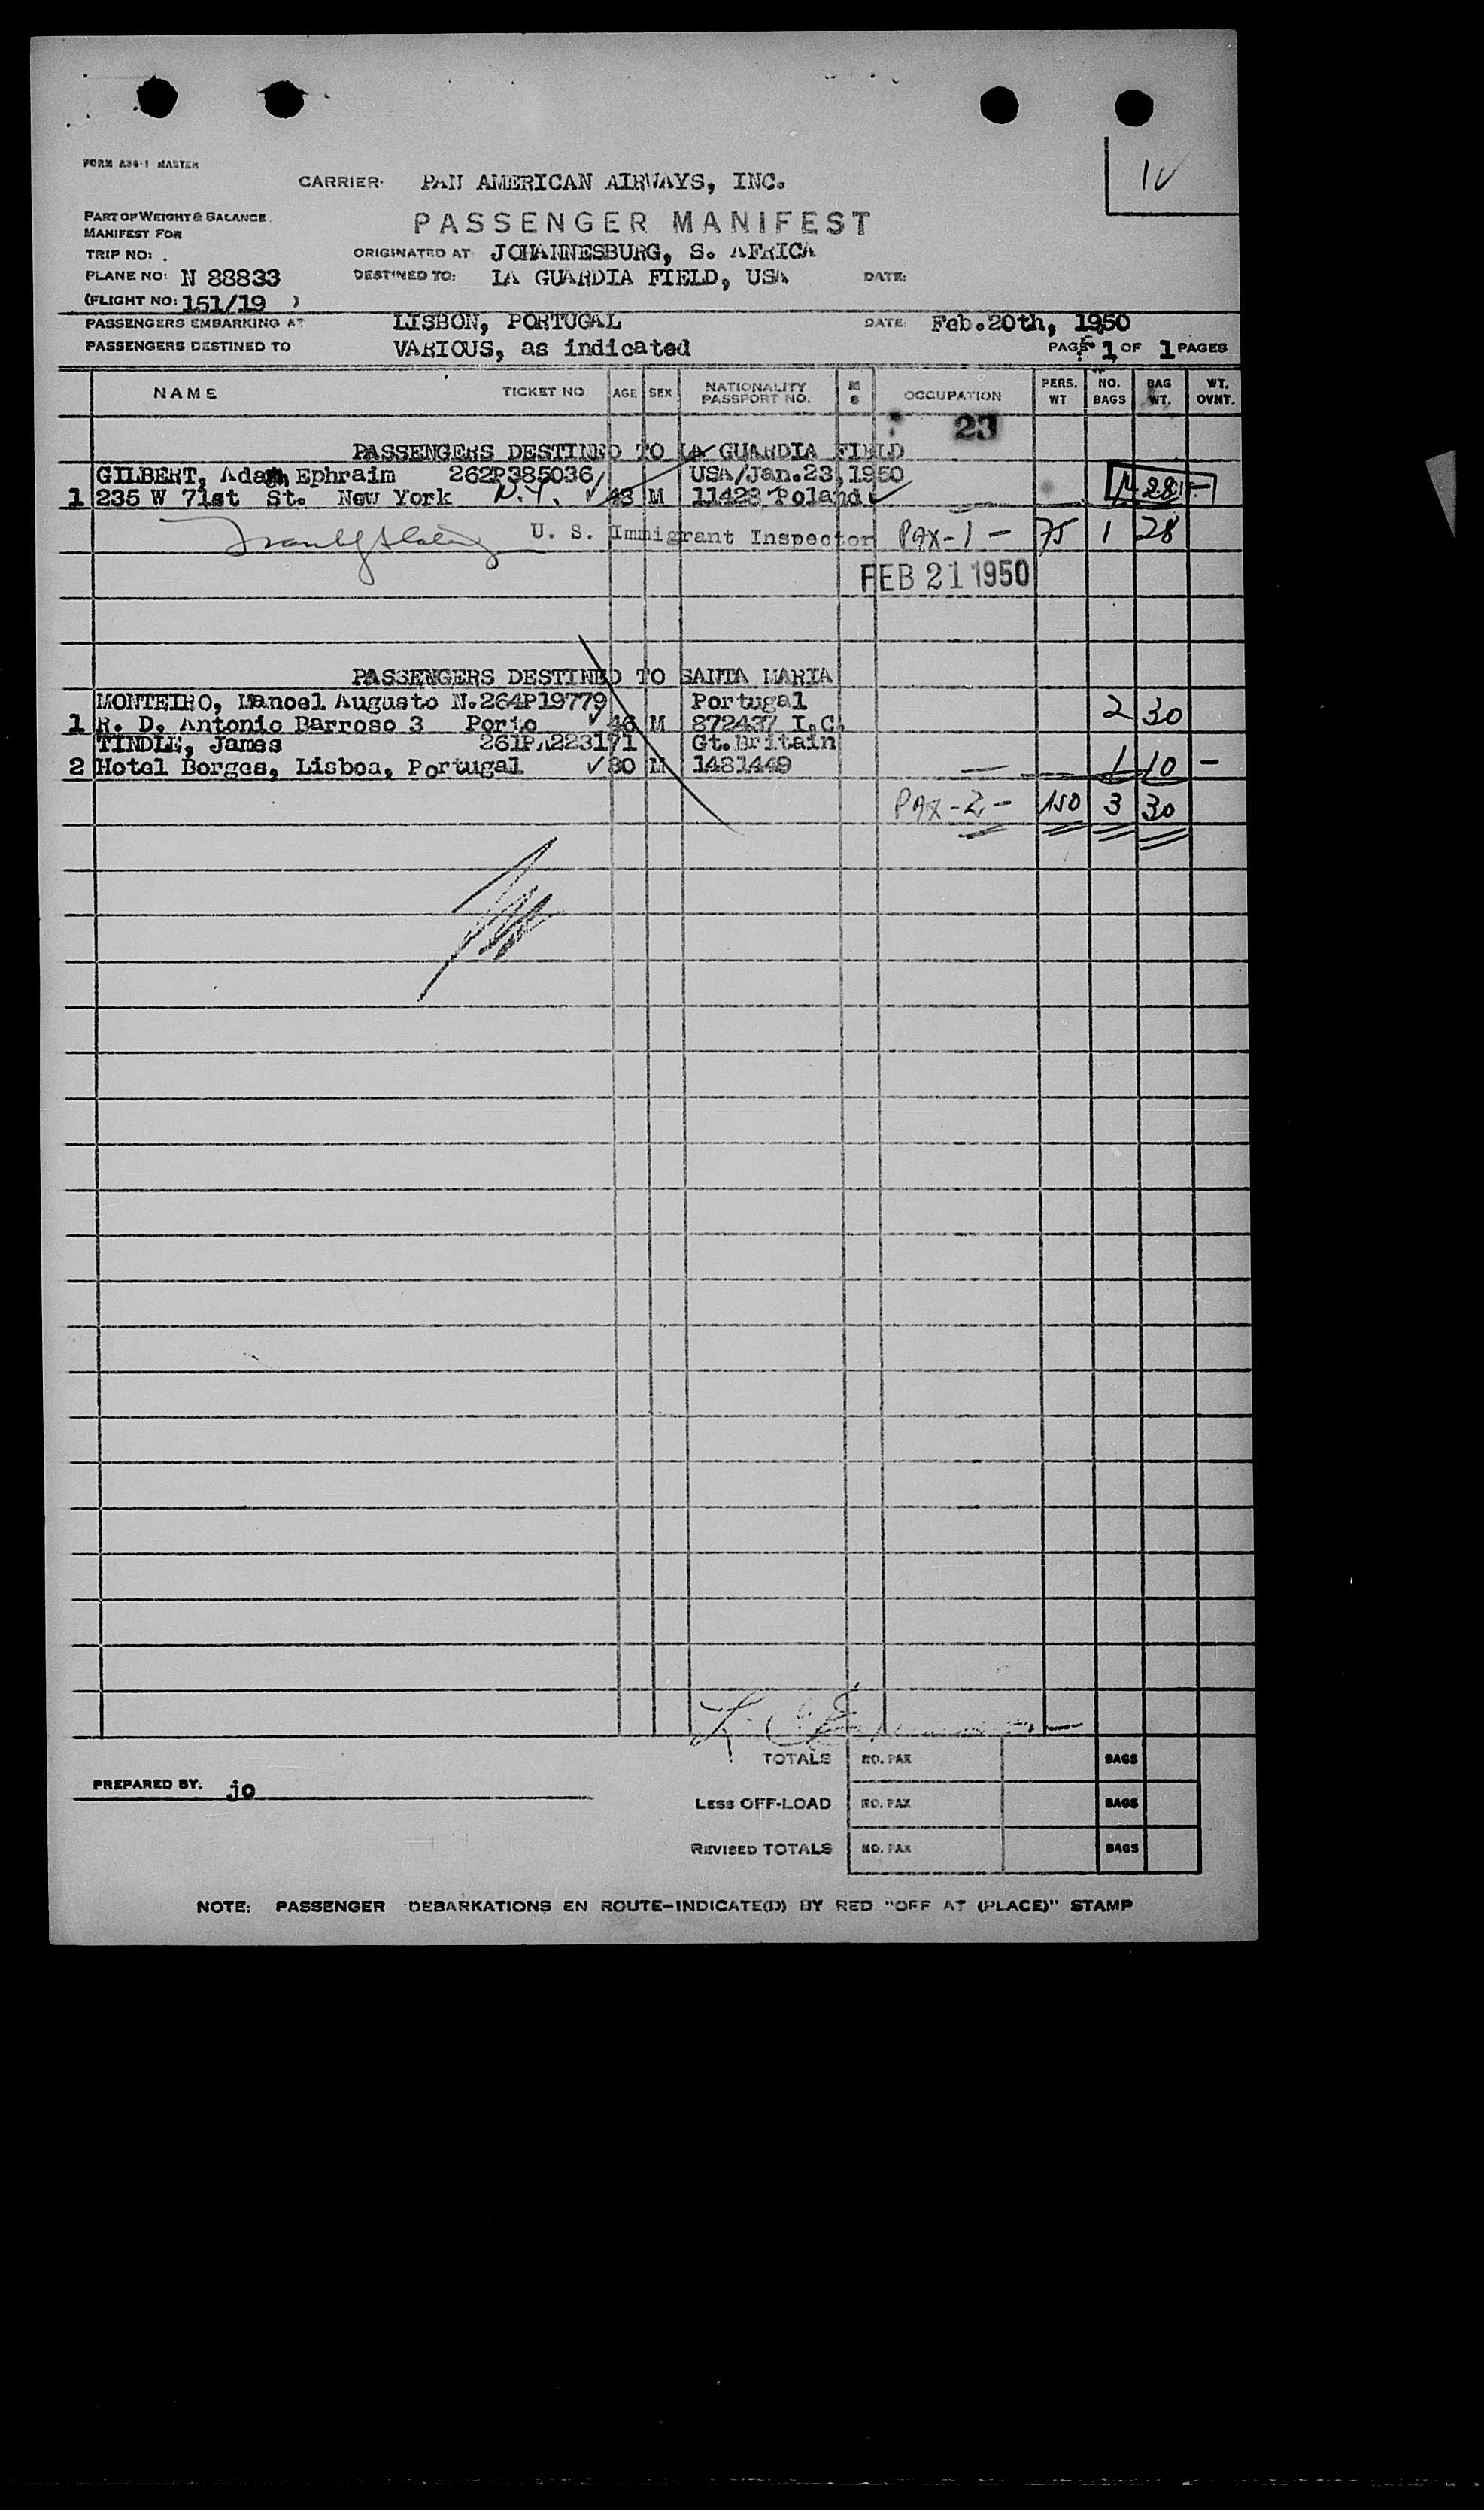 FORM A36-1 MASTER
CARRIER: PAN AMERICAN AIRWAYS, INC.
PART OF WEIGHT & BALANCE
MANIFEST FOR
PASSENGER MANIFEST
TRIP NO: .
ORIGINATED AT: JOHANNESBURG, S. AFRICA
PLANE NO: N 88833
DESTINED TO: LA GUARDIA FIELD, USA DATE:
(FLIGHT NO: 151/19 )
PASSENGERS EMBARKING AT LISBON, PORTUGAL DATE: Feb.20th, 1950
PASSENGERS DESTINED TO VARIOUS, as indicated PAGE 1 OF 1 PAGES
NAME TICKET NO AGE SEX NATIONALITY PASSPORT NO. M S OCCUPATION PERS. WT NO. BAGS BAG WT. WT. OVNT.
23
PASSENGERS DESTINED TO LA GUARDIA FIELD
GILBERT, Adam Ephraim 262P385036 USA/Jan.23,1950
1 235 W 71st St. New York N.Y. 48 M 11428 Poland 1 28 -
U. S. Immigrant Inspector PAX-1 - 75 1 28
FEB 21 1950
PASSENGERS DESTINED TO SANTA MARIA
MONTEIRO, Manoel Augusto N.264P19779 Portugal
1 R. D. Antonio Barroso 3 Porto 46 M 872437 I.C. 2 30
TINDLE, James 261PA223171 Gt.Britain
2 Hotel Borges, Lisboa, Portugal 30 M 1481449 1 10 -
PAX-2- 150 3 30
TOTALS NO. PAX BAGS
PREPARED BY. jo
LESS OFF-LOAD NO. PAX BAGS
REVISED TOTALS NO. PAX BAGS
NOTE: PASSENGER DEBARKATIONS EN ROUTE-INDICATE(D) BY RED "OFF AT (PLACE)" STAMP